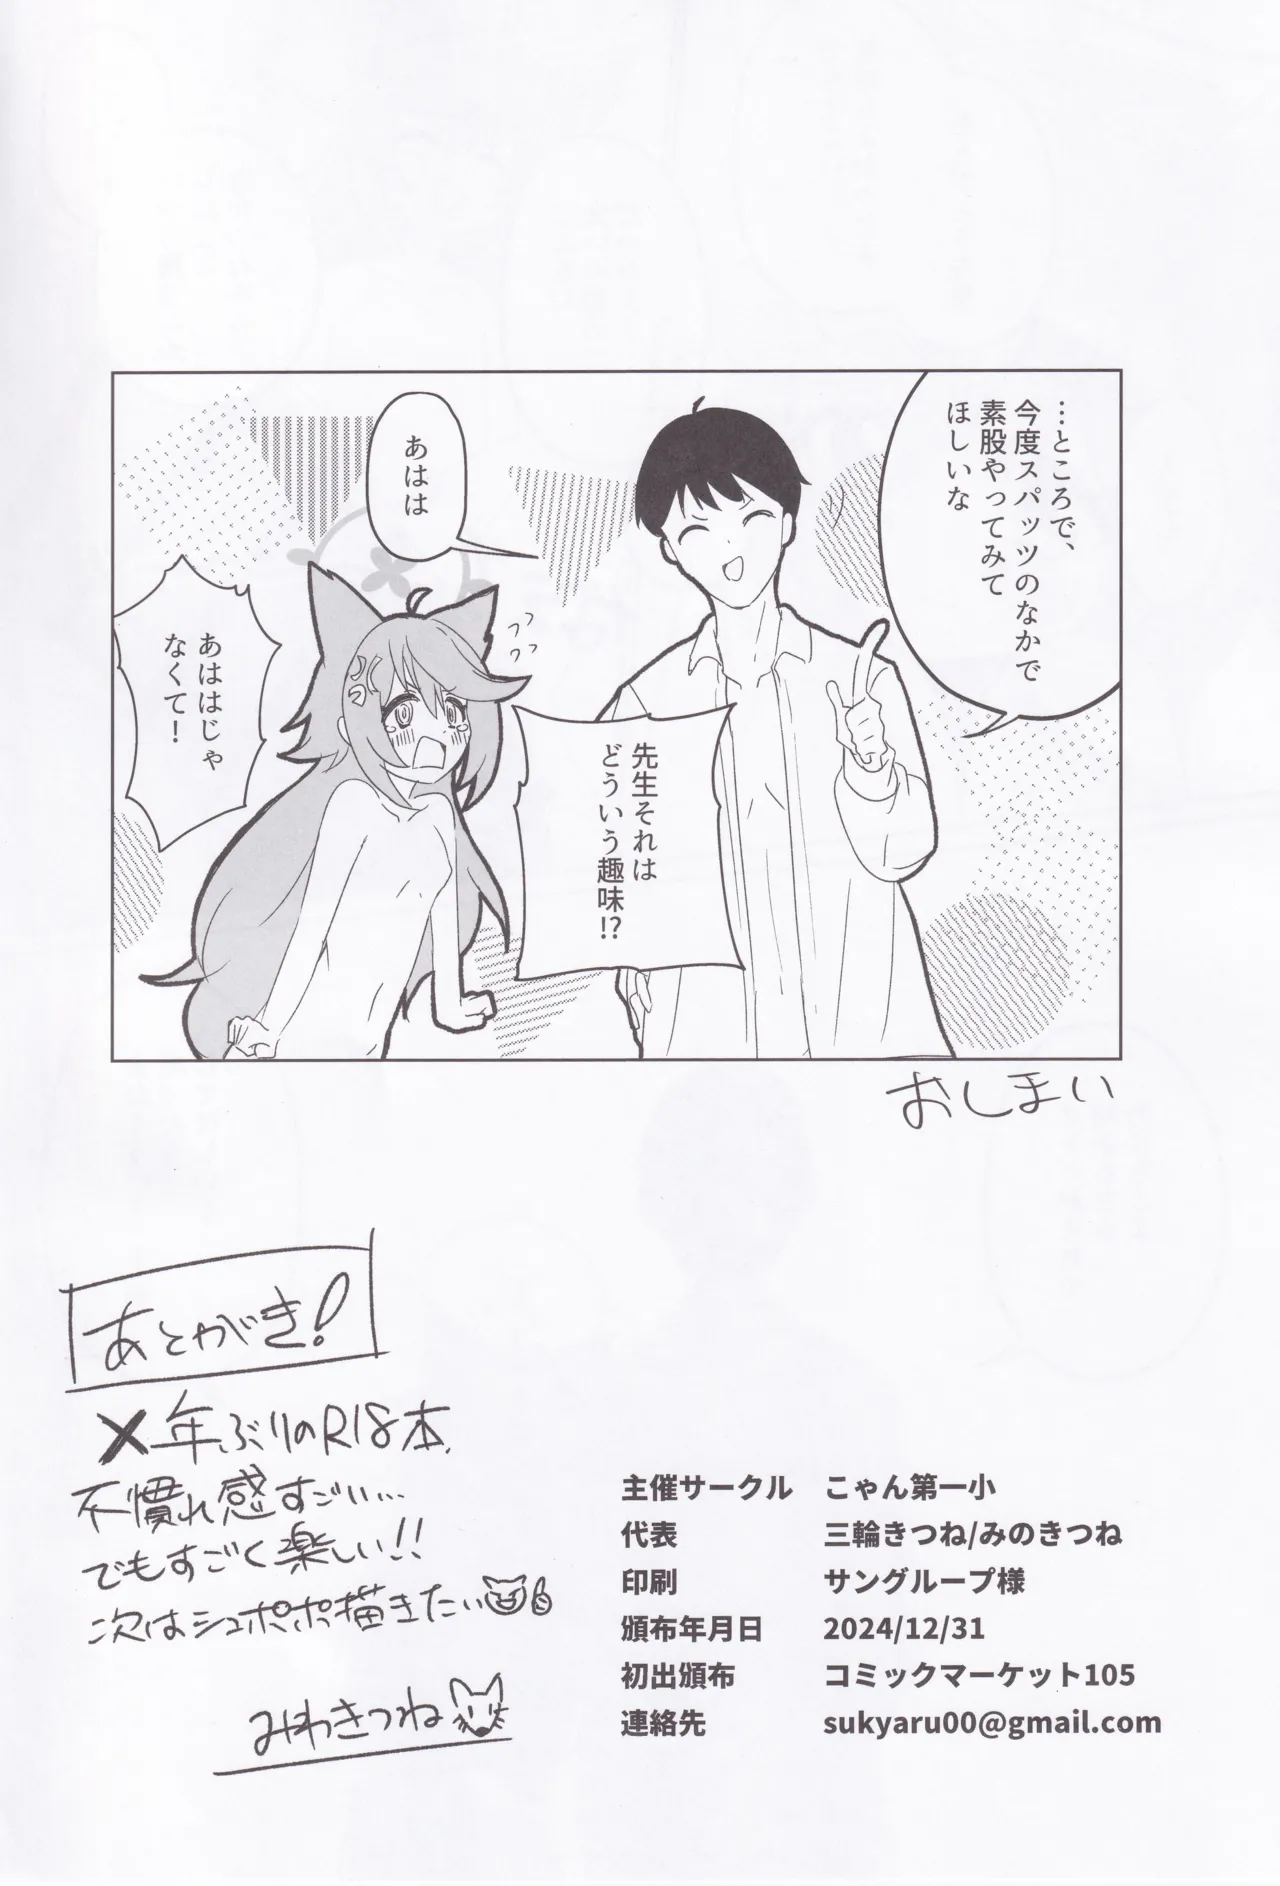 …ところで、
今度スパッツのなかで
素股やってみて
ほしいな
あはは
先生それは
どういう趣味!?
あははじゃ
なくて!
おしまい
あとがき!
×年ぶりのR18本
不慣れ感すごい…
でもすごく楽しい!!
次はシュポポ描きたい
みわきつね
主催サークル こゃん第一小
代表 三輪きつね/みのきつね
印刷 サングループ様
頒布年月日 2024/12/31
初出頒布 コミックマーケット105
連絡先 sukyaru00@gmail.com